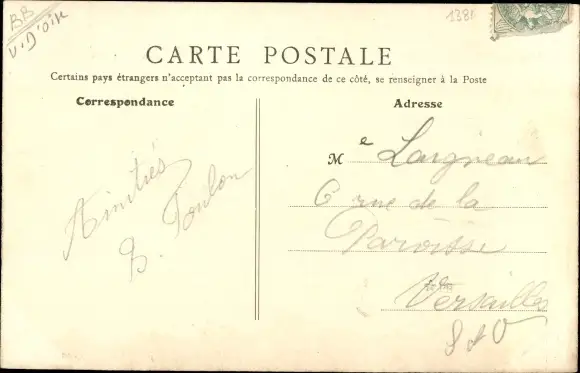 BB
V. D'OIR
1381
CARTE POSTALE
Certains pays étrangers n'acceptant pas la correspondance de ce côté, se renseigner à la Poste
Correspondance
Adresse
Amitiés
B. Toulon
Me Largneau
6 rue de la
Paroisse
Versailles
S & O